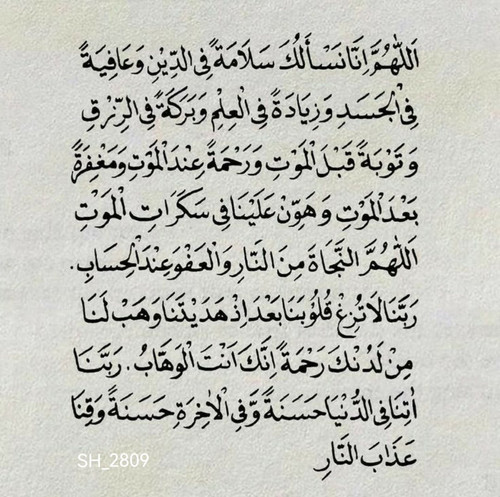 اَللّٰهُمَّ اِنَّا نَسْأَلُكَ سَلَامَةً فِى الدِّيْنِ وَعَافِيَةً
فِى الْجَسَدِ وَزِيَادَةً فِى الْعِلْمِ وَبَرَكَةً فِى الرِّزْقِ
وَتَوْبَةً قَبْلَ الْمَوْتِ وَرَحْمَةً عِنْدَ الْمَوْتِ وَمَغْفِرَةً
بَعْدَ الْمَوْتِ وَهَوِّنْ عَلَيْنَا فِى سَكَرَاتِ الْمَوْتِ
اَللّٰهُمَّ النَّجَاةَ مِنَ النَّارِ وَالْعَفْوَ عِنْدَ الْحِسَابِ.
رَبَّنَا لَا تُزِغْ قُلُوْبَنَا بَعْدَ اِذْ هَدَيْتَنَا وَهَبْ لَنَا
مِنْ لَدُنْكَ رَحْمَةً اِنَّكَ اَنْتَ الْوَهَّابُ. رَبَّنَا
اٰتِنَا فِى الدُّنْيَا حَسَنَةً وَّفِى الْاٰخِرَةِ حَسَنَةً وَّقِنَا
عَذَابَ النَّارِ
SH_2809